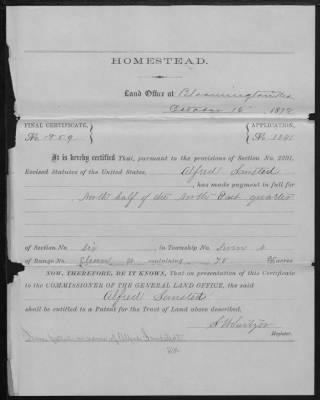 HOMESTEAD.
Land Office at Bloomington Neb
October 16 187
FINAL CERTIFICATE, APPLICATION,
No. 1859 No.
It is hereby certified That, pursuant to the provisions of Section No. 2291,
Revised Statutes of the United States, Alfred
, has made payment in full for
North half of the North East quarter
of Section No. six in Township No.
of Range No. Eleven W containing acres
NOW, THEREFORE, BE IT KNOWN, That on presentation of this Certificate
to the COMMISSIONER OF THE GENERAL LAND OFFICE, the said
Alfred
shall be entitled to a Patent for the Tract of Land above described.
Register.
in name of